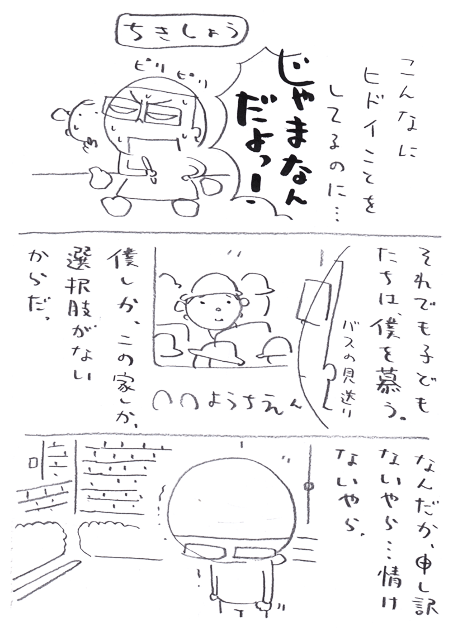 ちきしょう
こんなに
ヒドイことを
してるのに…
じゃまなん
だよっー!
ピリピリ
それでも子ども
たちは僕を慕う。
バスの見送り
〇〇ようちえん
僕しか、この家しか、
選択肢がない
からだ。
なんだか、申し訳
ないやら…情け
ないやら。